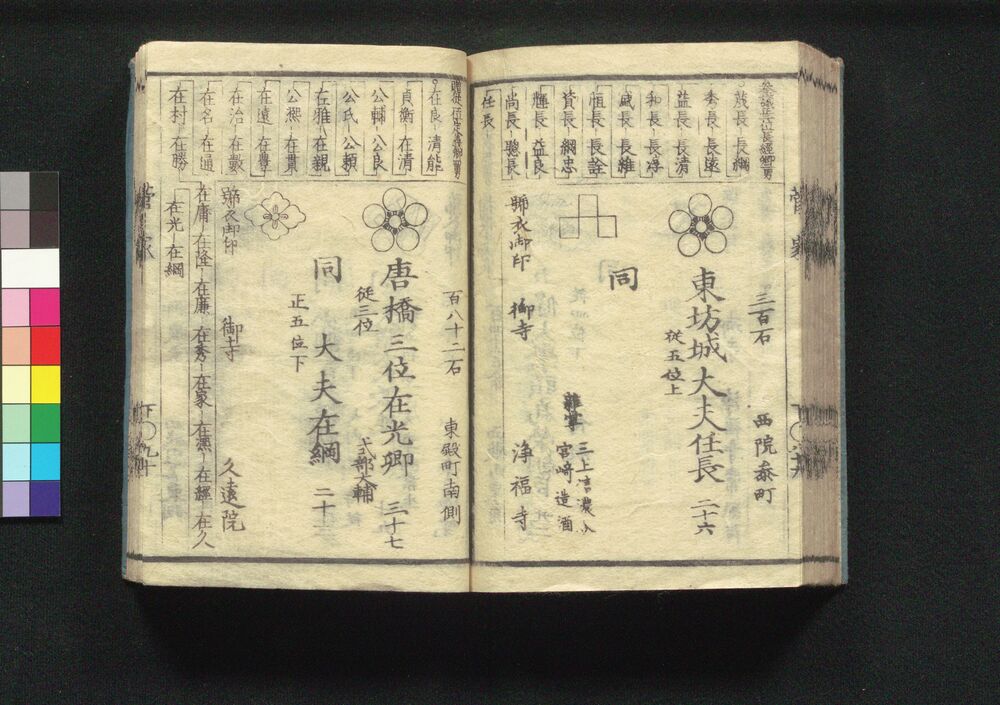 茂長 長綱
秀長 長遠
益長 長清
和長 長淳
盛長 長維
恒長 長詮
資長 綱忠
聰長 益良
尚長 聰長
任長
三百石
西院参町
東坊城大夫任長 二十六
従五位上
同
雑掌 三上信濃介
宮崎造酒
號衣御印 御寺 浄福寺
菅家
在良 清能
貞衡 在清
公輔 公良
公氏 公頼
在雅 在親
公凞 在貫
在遠 在豊
在治 在數
在名 在通
在村 在勝
百八十二石 東殿町南側
唐橋三位在光卿 三十七
従三位 式部大輔
同 大夫在綱 二十二
正五位下
號衣御印 御寺 久遠院
在庸 在隆 在廉 在秀 在家 在凞 在經 在久
在光 在綱
菅家